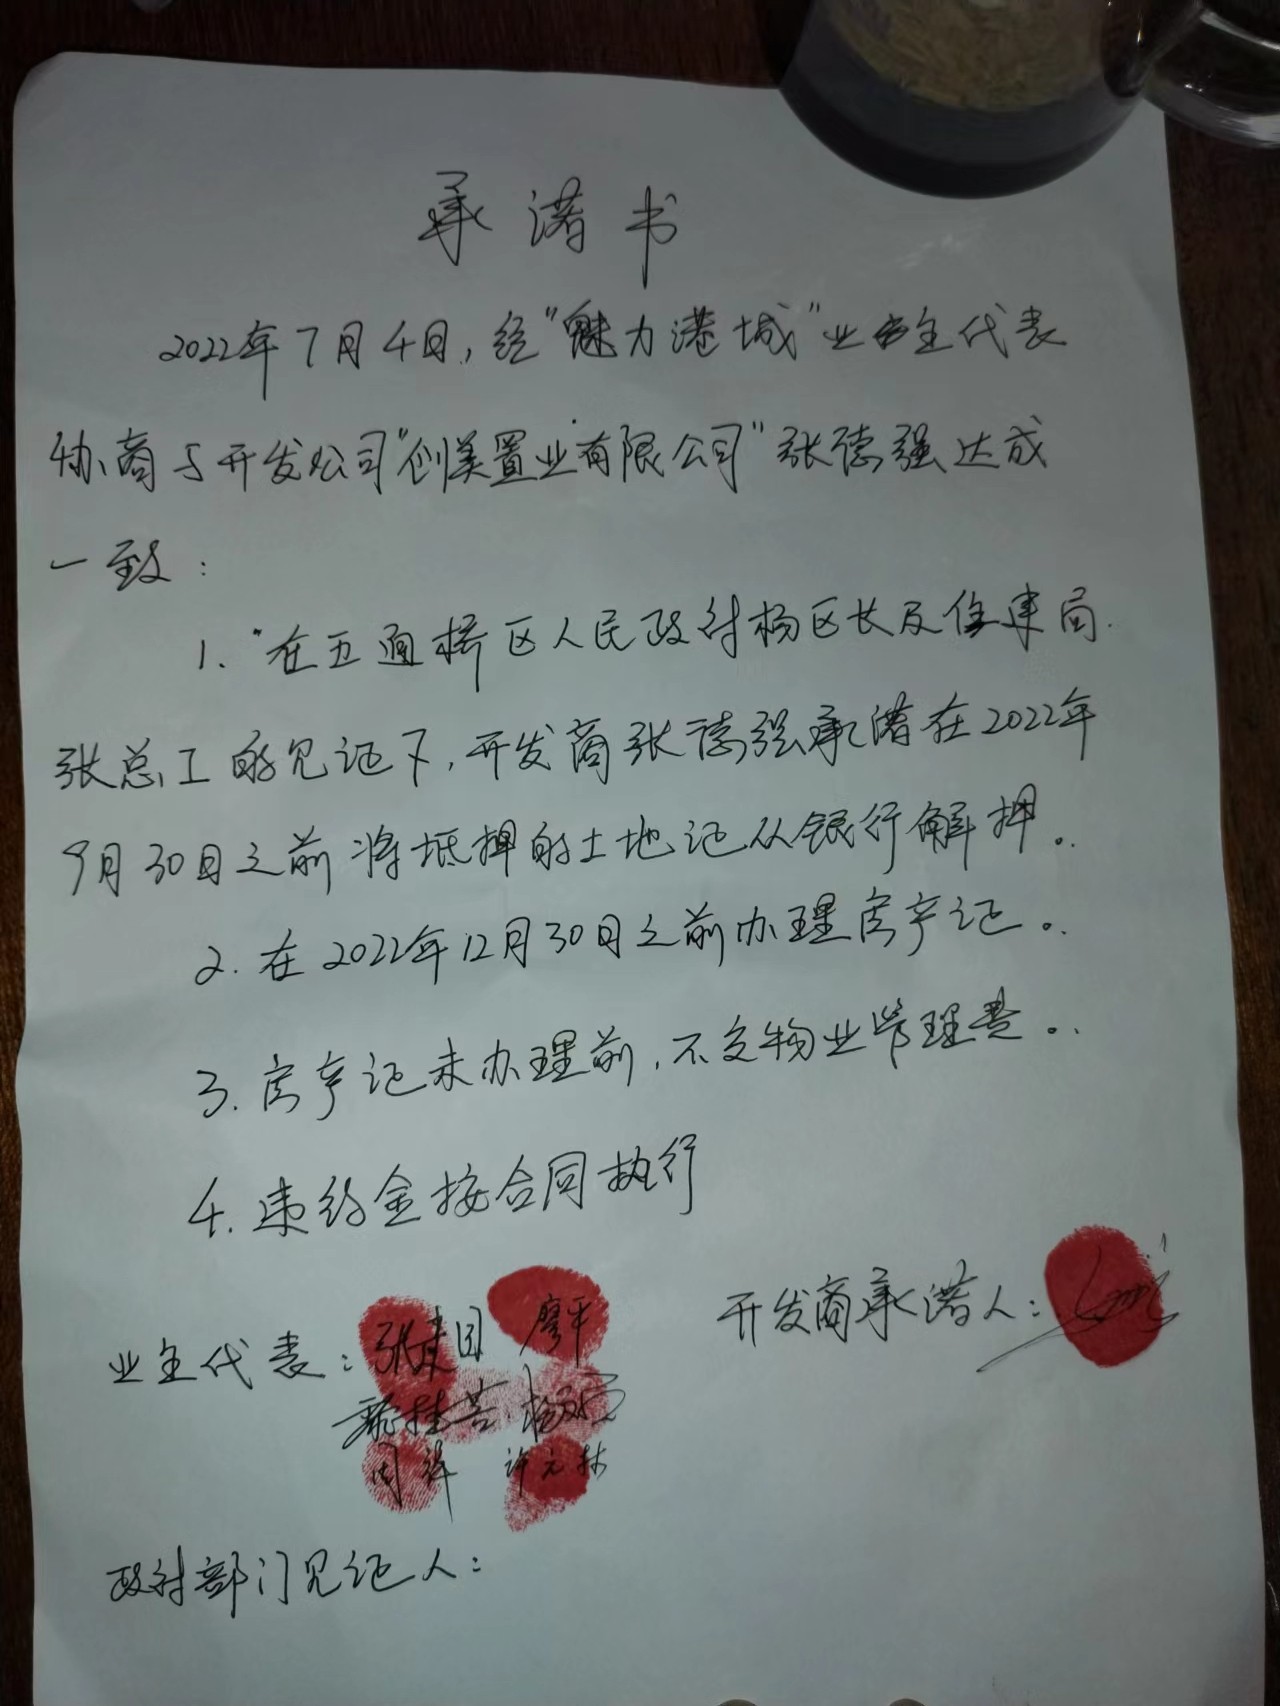 承诺书
2022年7月4日,经"魅力港城"业主代表
协商与开发公司"创美置业有限公司"张德强达成
一致:
1. 在五通桥区人民政府杨区长及住建局
张总工的见证下,开发商张德强承诺在2022年
9月30日之前将抵押的土地证从银行解押。
2. 在2022年12月30日之前办理房产证。
3. 房产证未办理前,不交物业管理费。
4. 违约金按合同执行
业主代表: 张建国 廖平 开发商承诺人:
周祥 许元林
政府部门见证人: